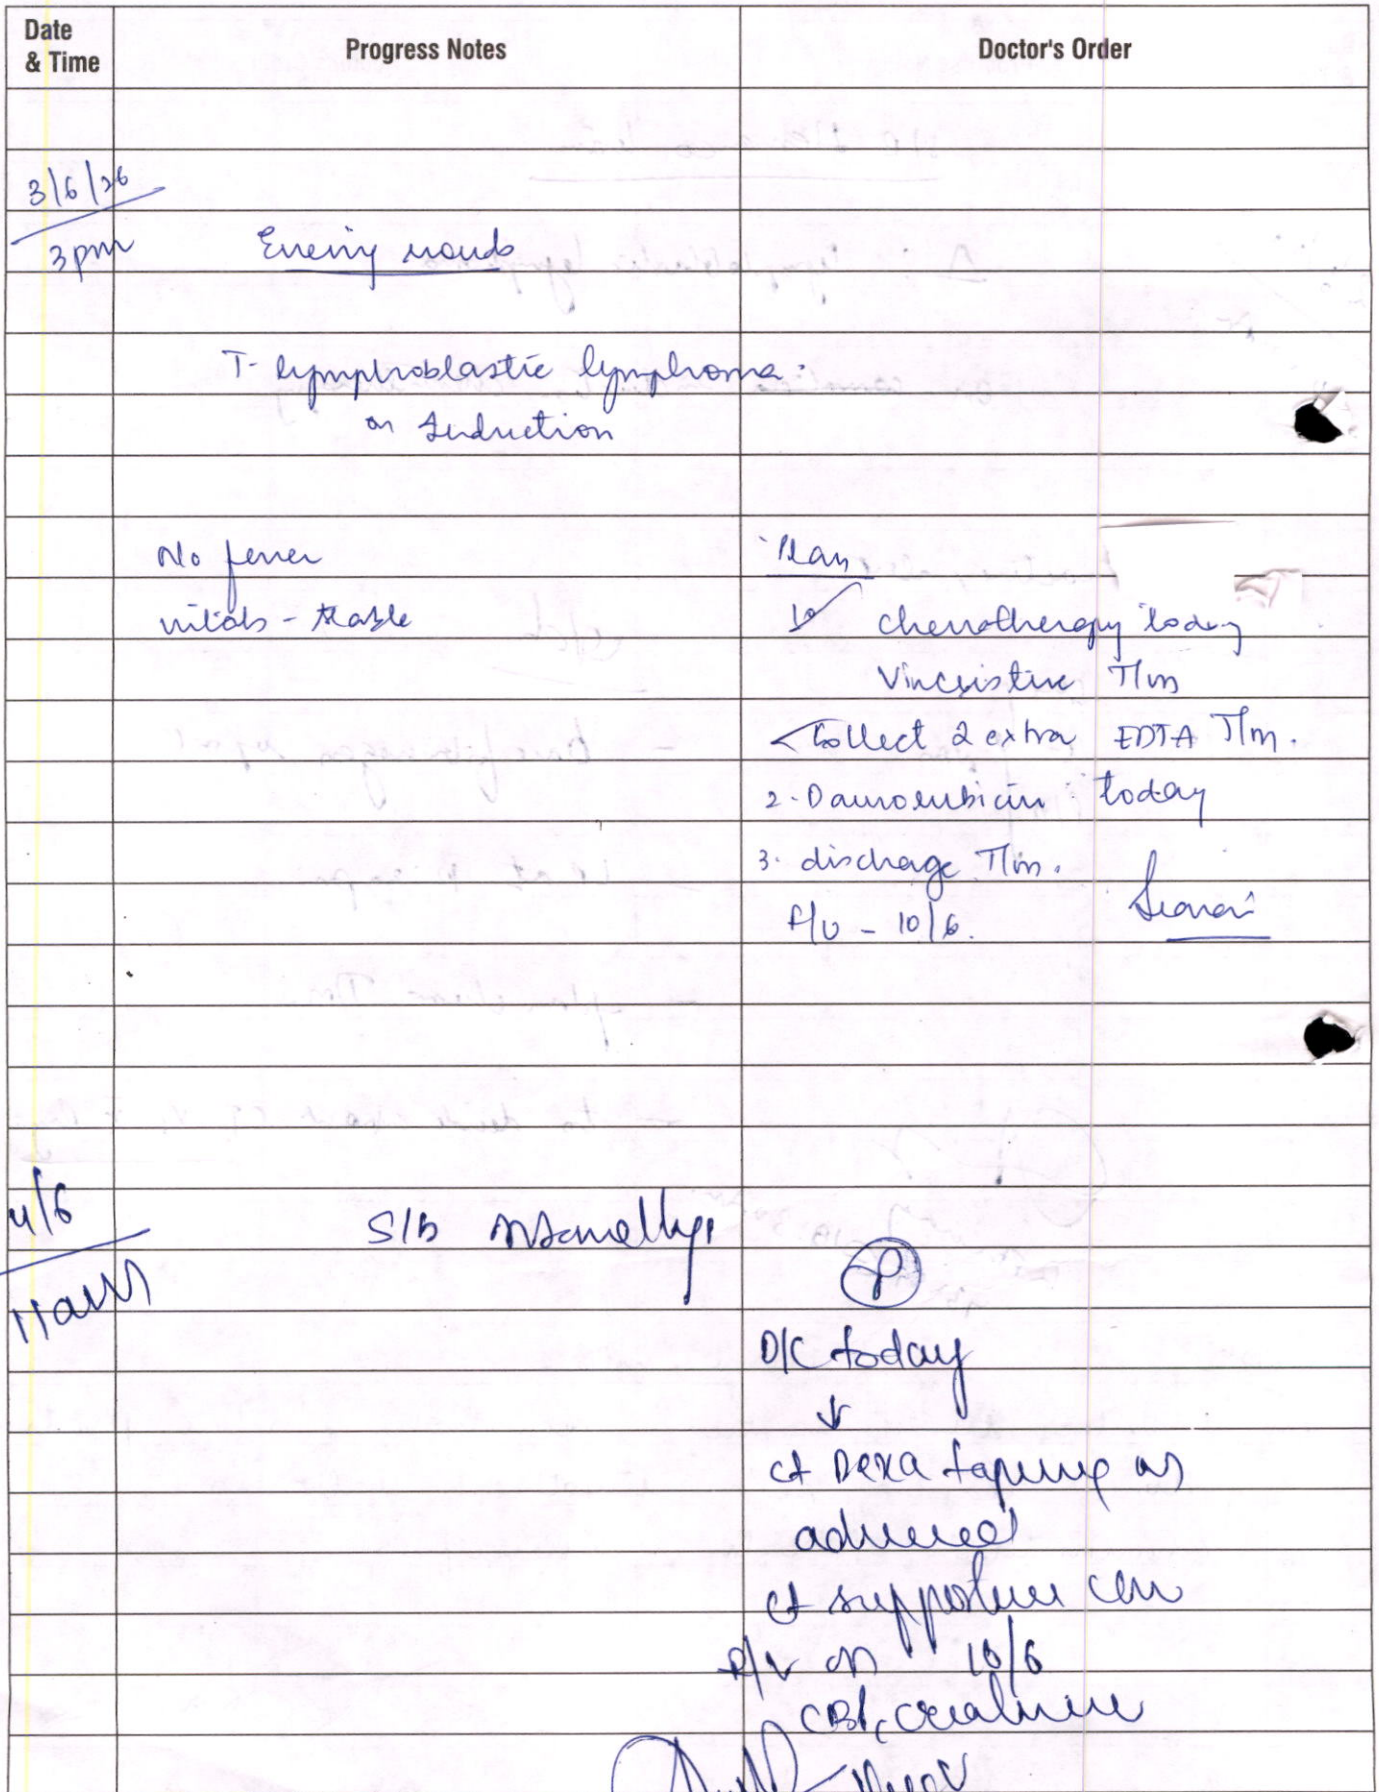 Date
& Time
Progress Notes
Doctor's Order
3/6/26
3pm
Evening rounds
T- Lymphoblastic lymphoma.
on Induction
No fever
vitals - stable
Plan
1. chemotherapy today
Vincristine T/m
Collect 2 extra EDTA T/m.
2. Daunorubicin today
3. discharge T/m.
f/u - 10/6.
4/6
11am
S/B
P
D/C today
↓
ct Dexa tapering as
advised
ct supportive care
R/v on 10/6
CBC, creatinine